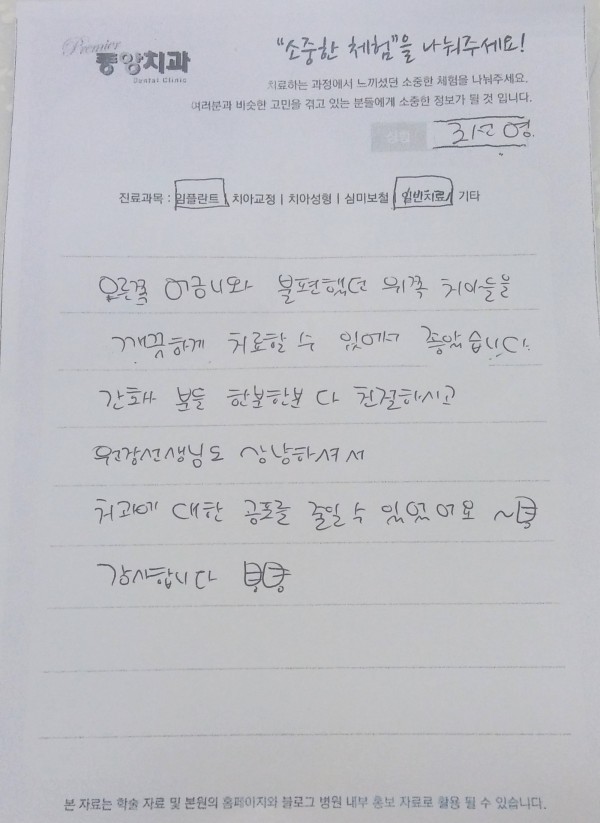 Premier
중앙치과
Dental Clinic
"소중한 체험"을 나눠주세요!
치료하는 과정에서 느끼셨던 소중한 체험을 나눠주세요.
여러분과 비슷한 고민을 겪고 있는 분들에게 소중한 정보가 될 것 입니다.
성함 최선영.
진료과목 : 임플란트 | 치아교정 | 치아성형 | 심미보철 | 일반치료 | 기타
오른쪽 어금니와 불편했던 위쪽 치아들을
깨끗하게 치료할 수 있에서 좋았습니다.
간호사 분들 한분한분 다 친절하시고
원장선생님도 상냥하셔서
치과에 대한 공포를 줄일 수 있었어요 ~
감사합니다
본 자료는 학술 자료 및 본원의 홈페이지와 블로그 병원 내부 홍보 자료로 활용 될 수 있습니다.